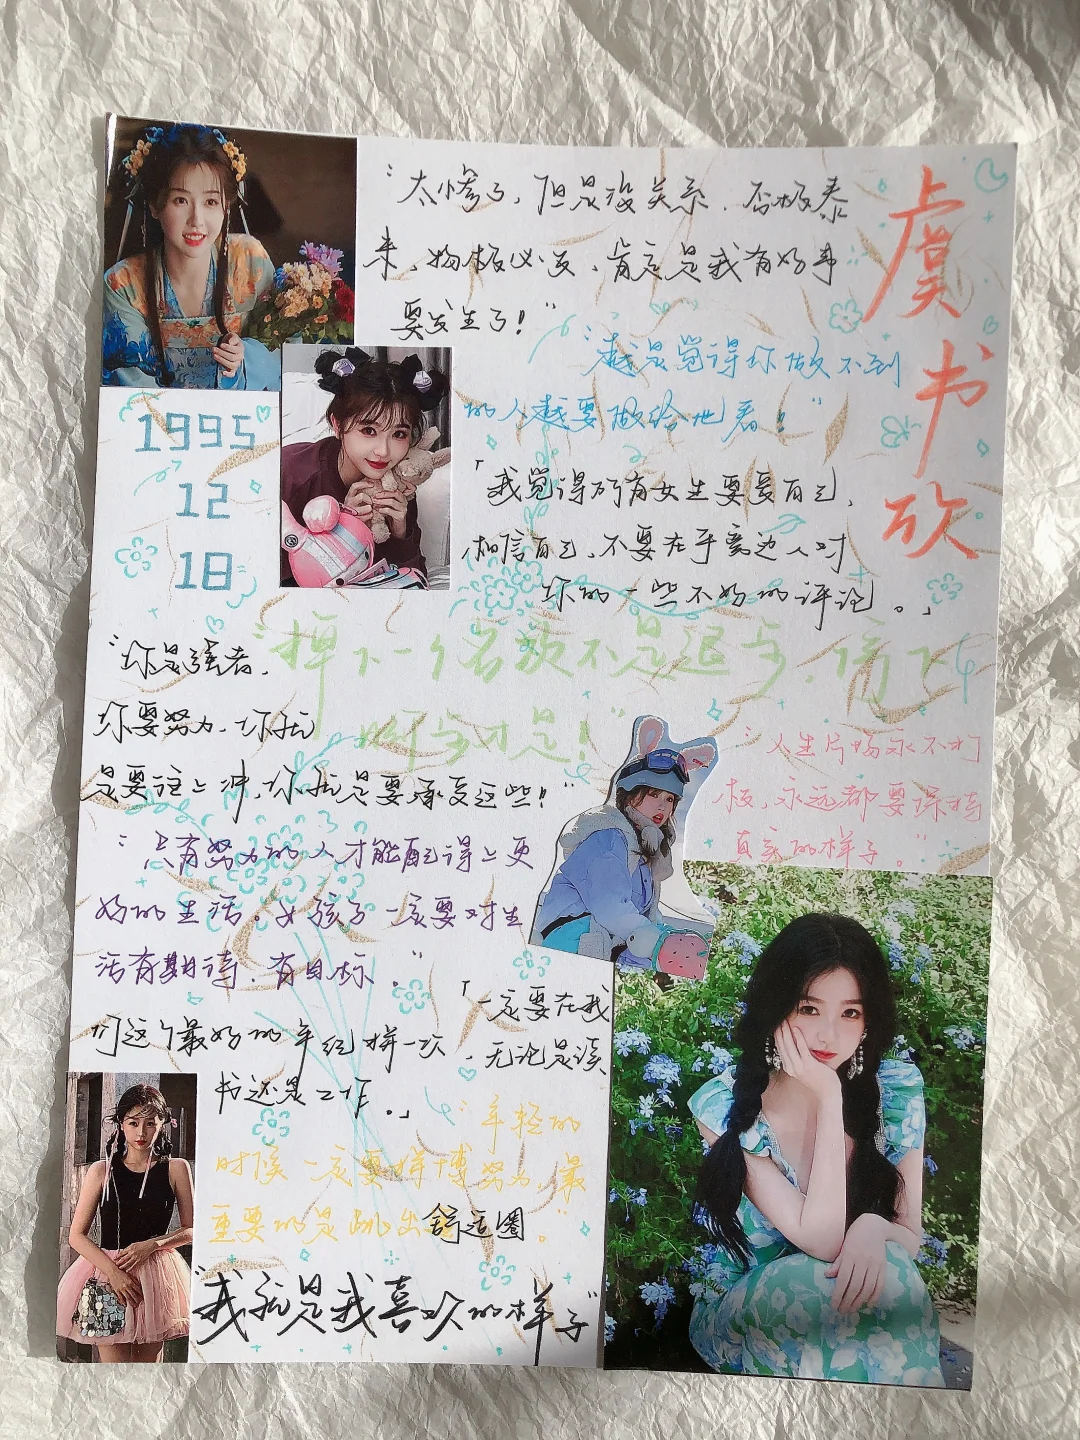 虞书欣
"太惨了，但是没关系，否极泰
来，物极必反，肯定是我有好事
要发生了！"
"越是觉得你做不到
的人越要做给他看！"
1995
12
18
「我觉得所有女生要爱自己，
相信自己，不要在乎旁边人对
你的一些不好的评论。」
"掉下一个名次不是退步，
才是！"
"你是强者，
你要努力，你就
是要往上冲，你就是要承受这些！"
"人生片场永不打
板，永远都要保持
真实的样子。"
"只有努力的人才能配得上更
好的生活。女孩子一定要对生
活有期待，有目标。"
「一定要在我
们这个最好的年纪拼一次，无论是读
书还是工作。」
"年轻的
时候一定要拼搏努力，最
重要的是跳出舒适圈。"
"我就是我喜欢的样子"